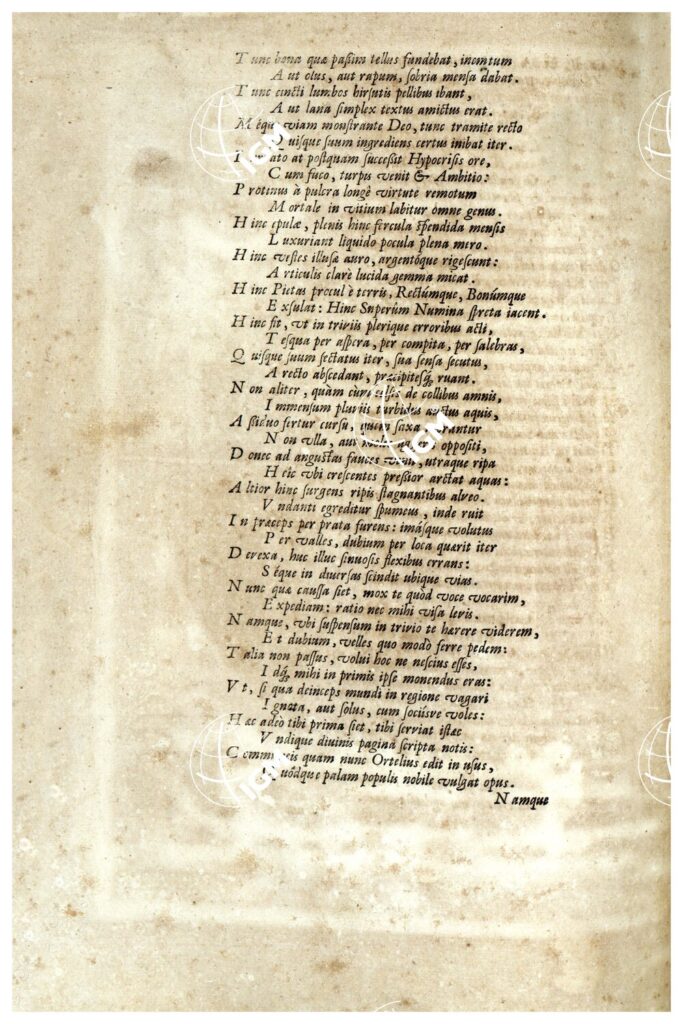 Tunc bona quæ paßim tellus fundebat, inemtum
Aut olus, aut rapum, sobria mensa dabat.
Tunc cincti lumbos hirsutis pellibus ibant,
Aut lana simplex textus amictus erat.
Méque viam monstrante Deo, tunc tramite recto
Quisque suum ingrediens certus inibat iter.
at postquam succeßit Hypocrisis ore,
Cum fuco, turpis venit & Ambitio:
Protinus à pulcra longè virtute remotum
Mortale in vitium labitur omne genus.
Hinc epulæ, plenis hinc fercula splendida mensis
Luxuriant liquido pocula plena mero.
Hinc vestes illusæ auro, argentóque rigescunt:
Articulis clarè lucida gemma micat.
Hinc Pietas procul è terris, Rectúmque, Bonúmque
Exsulat: Hinc Superûm Numina spreta iacent.
Hinc fit, vt in triviis plerique erroribus acti,
Tesqua per aspera, per compita, per salebras,
Quisque suum sectatus iter, sua sensa secutus,
A recto abscedant, præcipitesq́; ruant.
Non aliter, quàm cum celsis de collibus amnis,
Immensum pluviis turbidus auctus aquis,
Aßiduo fertur cursu, quem saxa morantur
Non vlla, aut moles aggeri oppositi,
Donec ad angustas fauces venit, utraque ripa
Heîc vbi crescentes preßior arctat aquas:
Altior hinc surgens ripis stagnantibus alveo.
Vndanti egreditur spumeus, inde ruit
In præceps per prata furens: imásque volutus
Per valles, dubium per loca quærit iter
Derexa, huc illuc sinuosis flexibus errans:
Séque in diversas scindit ubique vias.
Nunc quæ caussa siet, mox te quòd voce vocarim,
Expediam: ratio nec mihi visa levis.
Namque, vbi suspensum in trivio te hærere viderem,
Et dubium, velles quo modò ferre pedem:
Talia non passus, volui hoc ne nescius esses,
Idq́; mihi in primis ipse monendus eras:
Vt, si qua deinceps mundi in regione vagari
Ignota, aut solus, cum sociisve voles:
Hæc adeò tibi prima siet, tibi serviat istæc
Vndique divinis pagina scripta notis:
Communis quam nunc Ortelius edit in usus,
Quódque palam populis nobile vulgat opus.
Namque
IGM
IGM
IGM